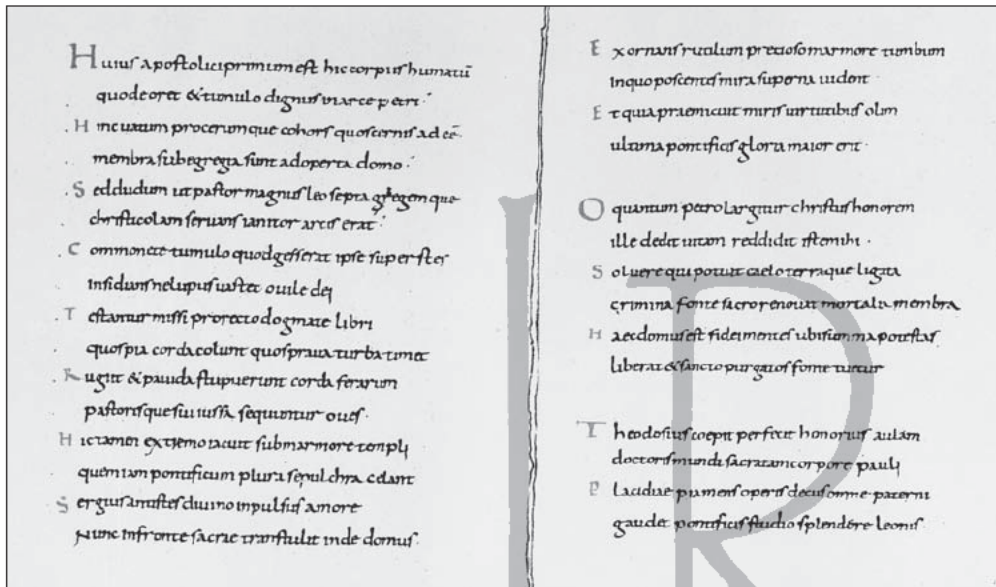 Huius apostolici primum est hic corpus humatū
quod foret & tumulo dignus in arce petri
Hinc uatum procerumque cohors quos cernis adeē
membra sub egregia sunt adoperta domo
Sed dudum ut pastor magnus leo septa gregemque
christicolam seruans ianitor arcis erat
Commonet e tumulo quod gesserat ipse superstes
insidians ne lupus uastet ouile dei
Testantur missi pro recto dogmate libri
quos pia corda colunt quos praua turba timet
Rugiit & pauida stupuerunt corda ferarum
pastorisque sui iussa sequuntur oues
Hic tamen extremo iacuit sub marmore templi
quem iam pontificum plura sepulchra celant
Sergius antistes diuino inpulsus amore
Nunc in fronte sacrae transtulit inde domus
Exornans rutilum precioso marmore tumbum
In quo poscentes mira superna uident
Et quia praemicuit miris uirtutibus olim
ultima pontificis gloria maior erit
O quantum petro largitur christus honorem
ille dedit uitam reddidit iste mihi
Soluere qui potuit caelo terraque ligata
crimina fonte sacro renouat mortalia membra
Haec domus est fidei mentes ubi summa potestas
liberat & sancto purgatos fonte tuetur
Theodosius coepit perfecit honorius aulam
doctoris mundi sacratam corpore pauli
Placidiae pia mens operis decus omne paterni
gaudet pontificis studio splendere leonis